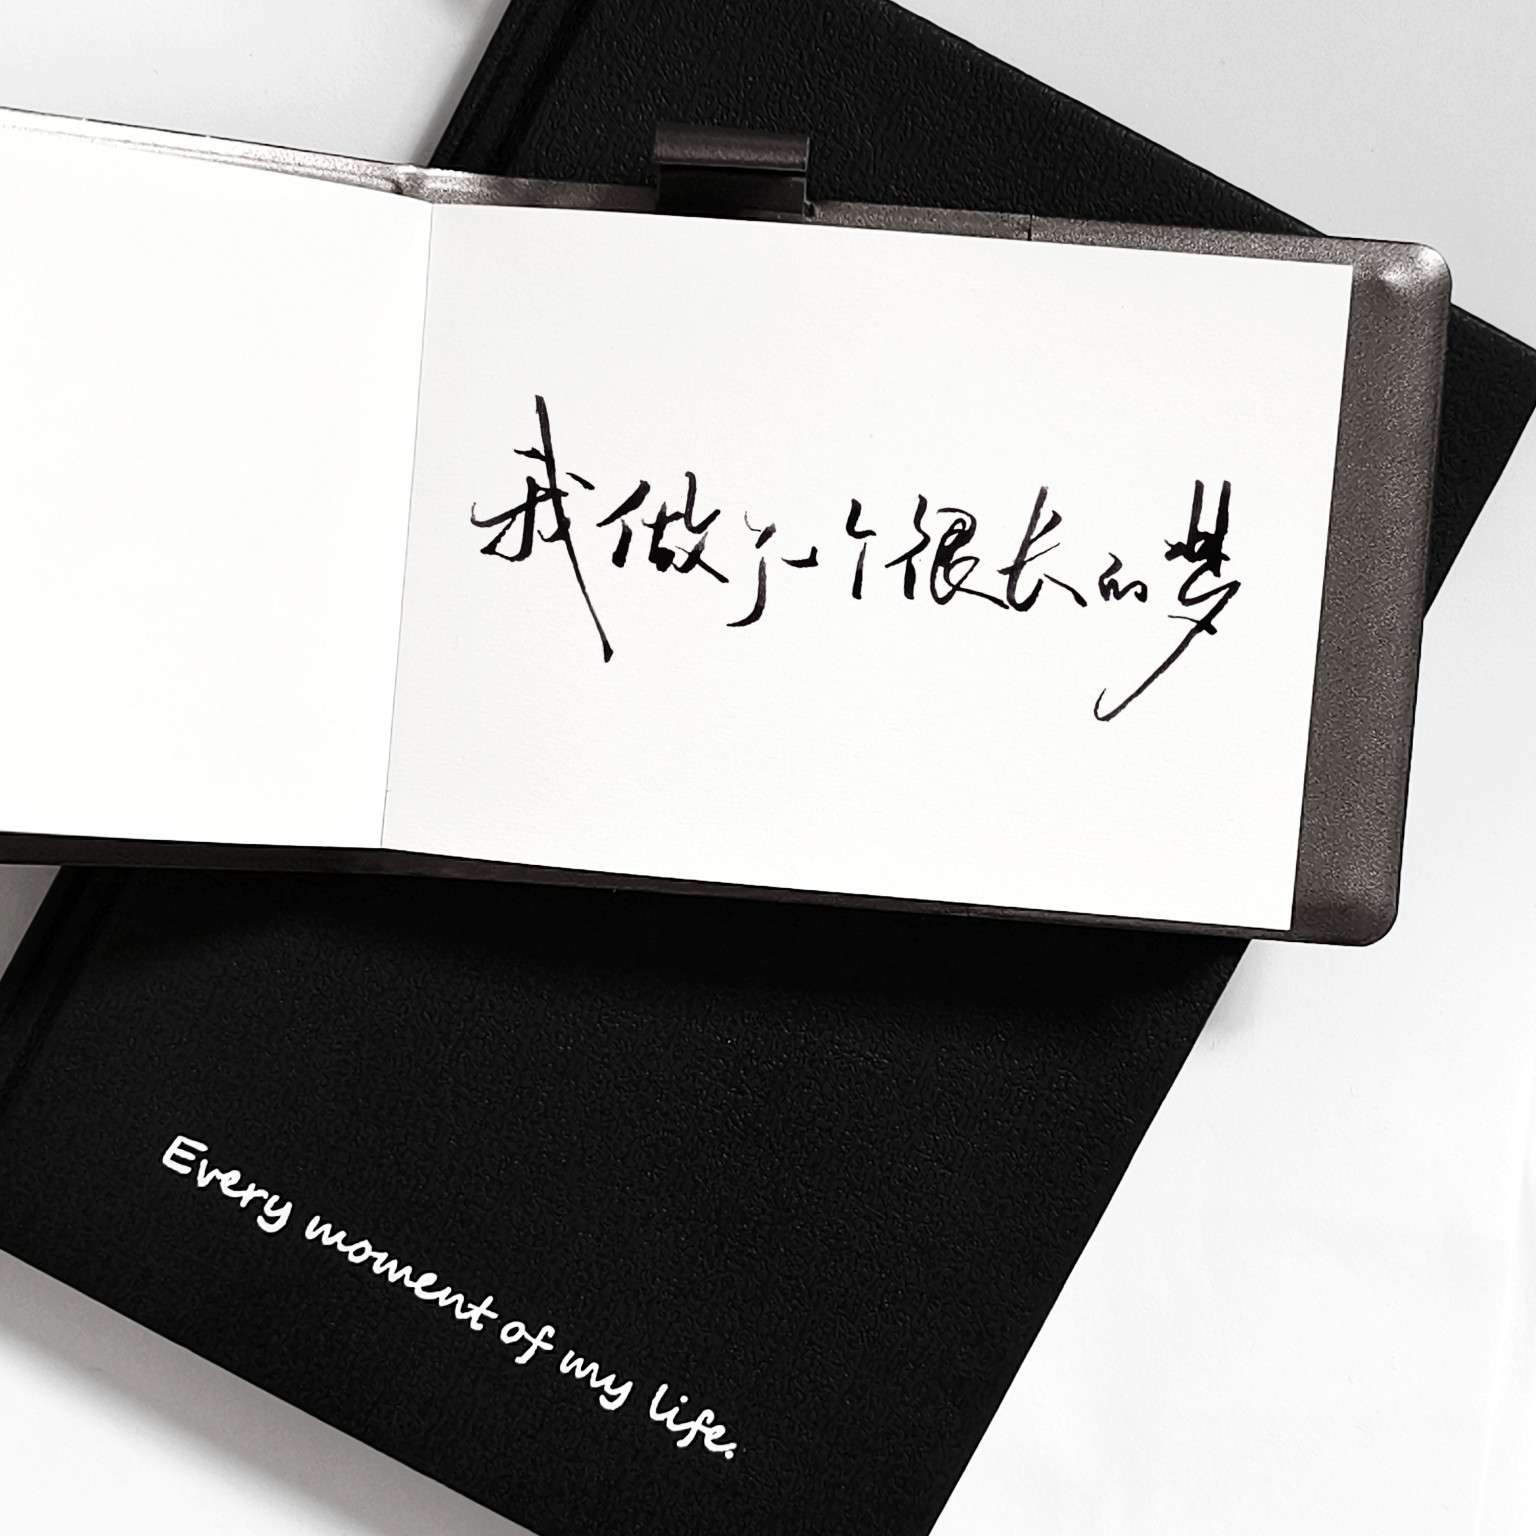 我做了一个很长的梦
Every moment of my life.